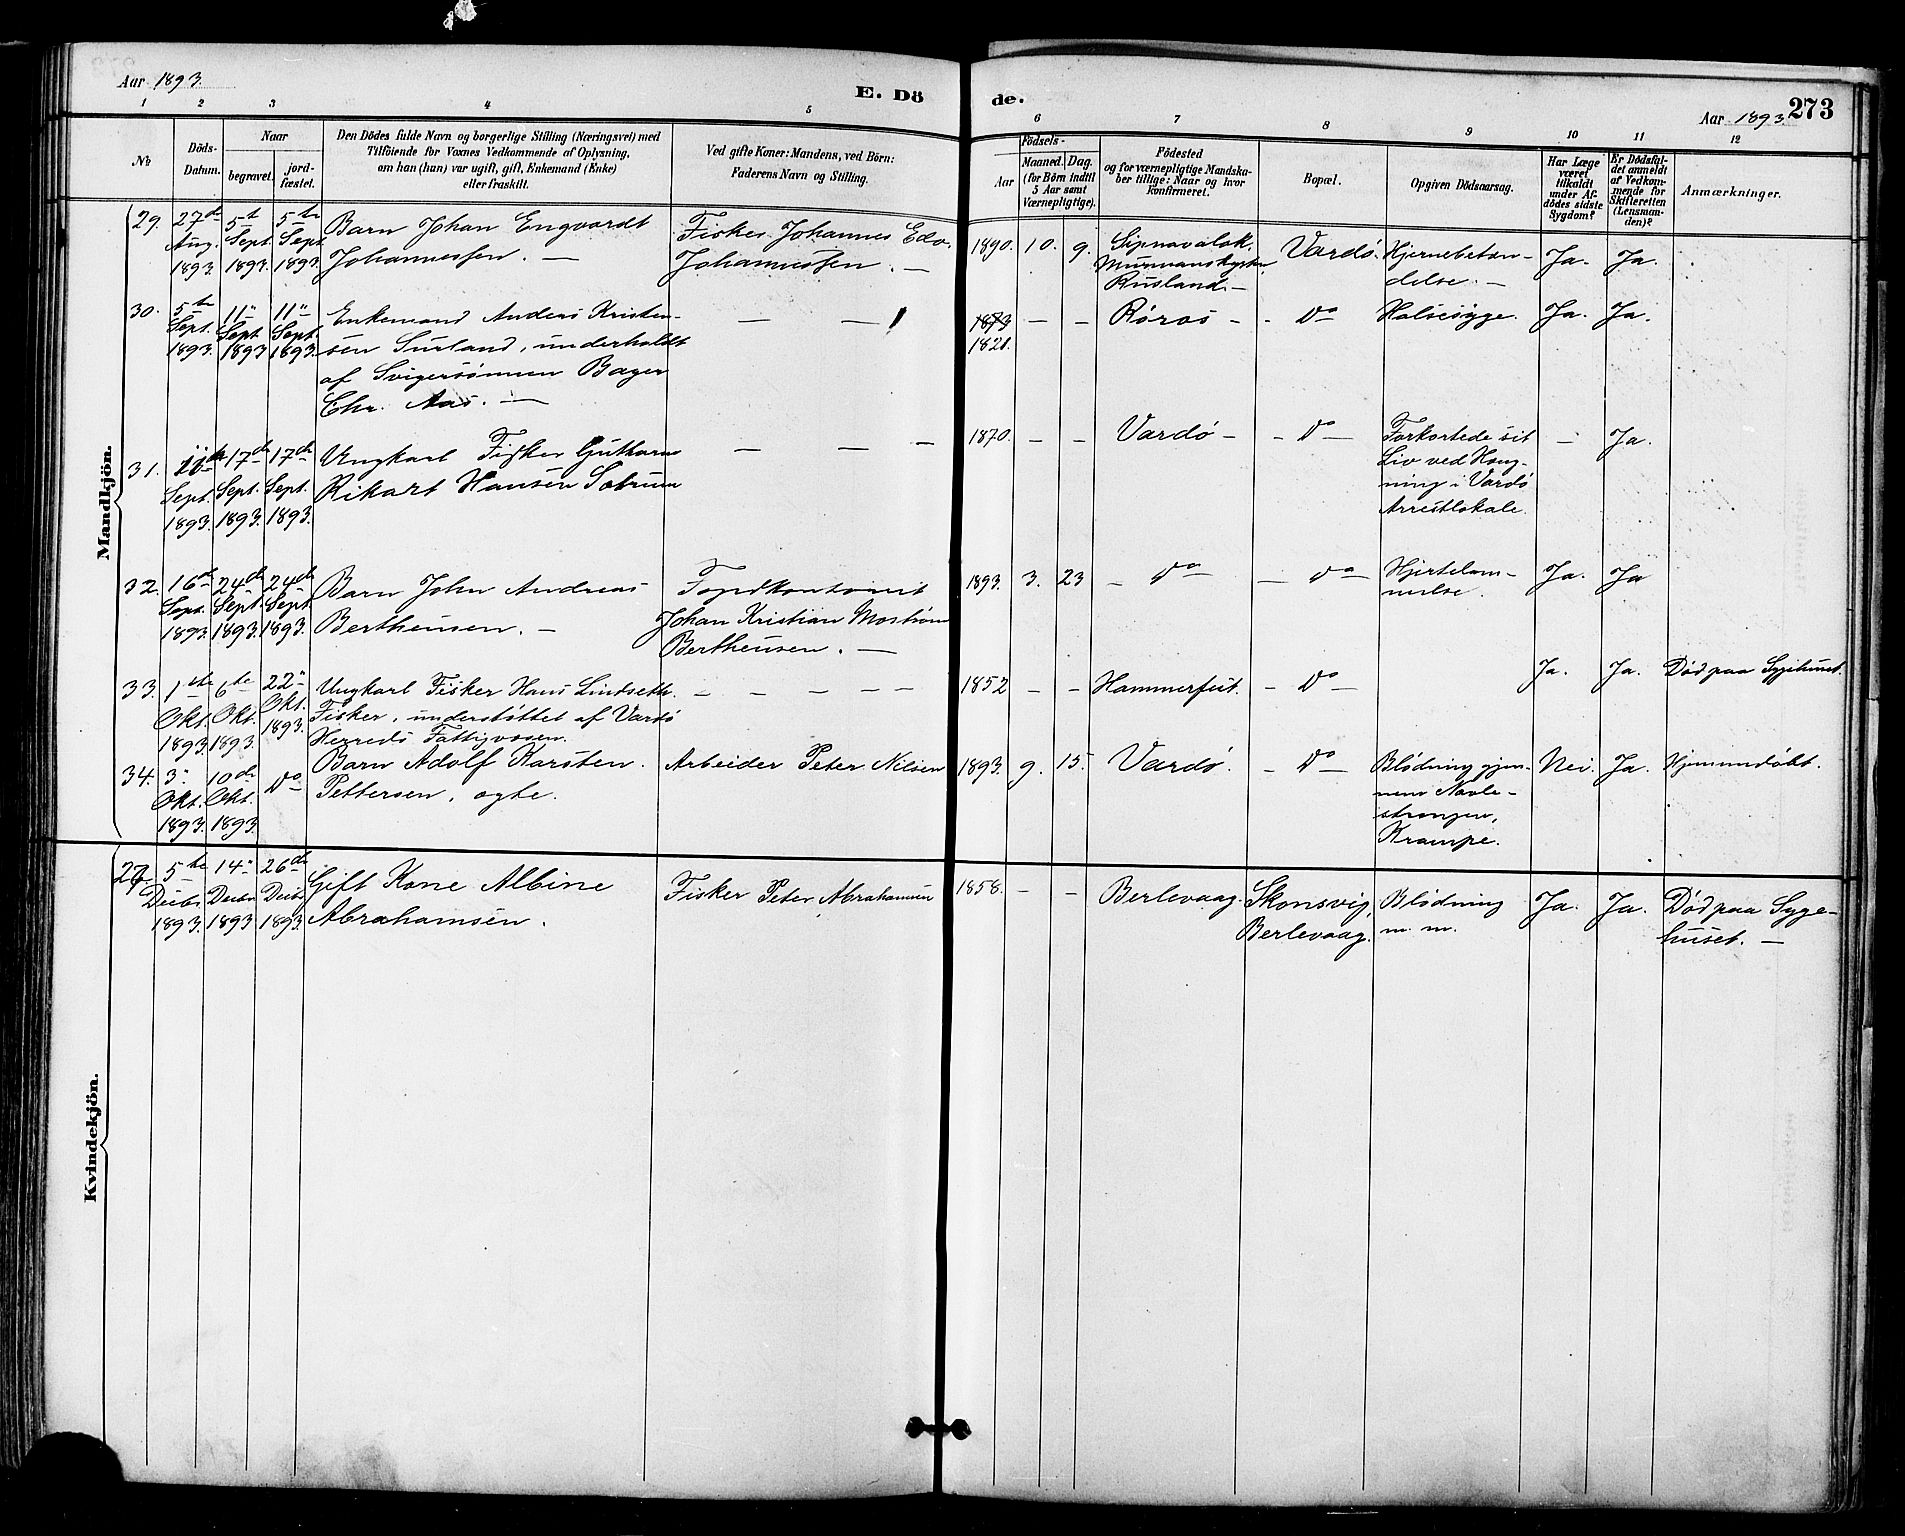 Aar 1893.
E. Dö
de.
Aar 1893.
273
1 2 3 4 5 6 7 8 9 10 11 12
No
Döds-Datum.
Naar
begravet.
jordfæstet.
Den Dödes fulde Navn og borgerlige Stilling (Næringsvei) med
Tilföiende for Voxnes Vedkommende af Oplysning,
om han (hun) var ugift, gift, Enkemand (Enke)
eller fraskilt.
Ved gifte Koner: Mandens, ved Börn:
Faderens Navn og Stilling.
Födsels-
Aar
Maaned. Dag.
(for Börn indtil
5 Aar samt
Værnepligtige).
Födested
og for værnepligtige Mandska-
ber tillige: Naar og hvor
konfirmeret.
Bopæl.
Opgiven Dödsaarsag.
Har Læge
været
tilkaldt
under Af-
dödes sidste
Sygdom?
Er Dödsfal-
det anmeldt
af Vedkom-
mende for
Skifteretten
(Lensman-
den)?
Anmærkninger.
Mandkjön.
29. 27de Aug. 1893. 5te Sept. 1893. 5te Sept. 1893.
Barn Johan Engvardt
Johannessen. —
Fisker Johannes Edv.
Johannessen. —
1890. 10. 9.
Murmanskysten
Rusland. —
Vardö.
Hjernebetæn-
delse. —
Ja. Ja.
30. 5te Sept. 1893. 11" Sept. 1893 11" Sept. 1893.
Enkemand Anders Kristen-
sen Surland, underholdt
af Svigersønnen Bager
Chr. Aas. —
— —
1873
1821.
— — Röros - - Do Halsesyge. Ja. Ja.
31. Sept. 1893. 17de Sept. 1893. 17de Sept. 1893.
Ungkarl Fisker Guthorm
Rikart Hansen Sotrum
— — —
1870. — — Vardö - - Do —
Forkortede sit
Liv ved Hæng-
ning i Vardö
Arrestlokale.
— Ja.
32. 16de Sept. 1893. 24de Sept. 1893. 24de Sept. 1893.
Barn John Andreas
Bertheusen. —
Fogedkontorist
Johan Kristian Moström
Bertheusen. —
1893. 3. 23 — Do — — Do —
Hjertelam-
melse.
Ja. Ja
33. 1ste Okt. 1893. 6te Okt. 1893. 22" Okt. 1893.
Ungkarl Fisker Hans Lindseth.
Fisker, understöttet af Vardö
Herreds Fattigvæsen.
— — — — —
1852 — — Hammerfest. - Do —
Ja. Ja. Död paa Sygehuset.
34. 3" Okt. 1893. 10de Okt. 1893. Do
Barn Adolf Karsten.
Pettersen, ægte.
Arbeider Peter Nilsen
1893. 9. 15. Vardö. - Do —
Blödning gjen-
nem Navle-
strengen,
Krampe.
Nei. Ja. Hjemmedöbt.
Kvindekjön.
27. 5te Decbr. 1893. 14" Decbr. 1893 26de Decbr. 1893
Gift Kone Albine
Abrahamsen.
Fisker Peter Abrahamsen
1858. — — Berlevaag.
Skonsvig,
Berlevaag.
Blödning
m. m.
Ja. Ja.
Död paa Syge-
huset. —